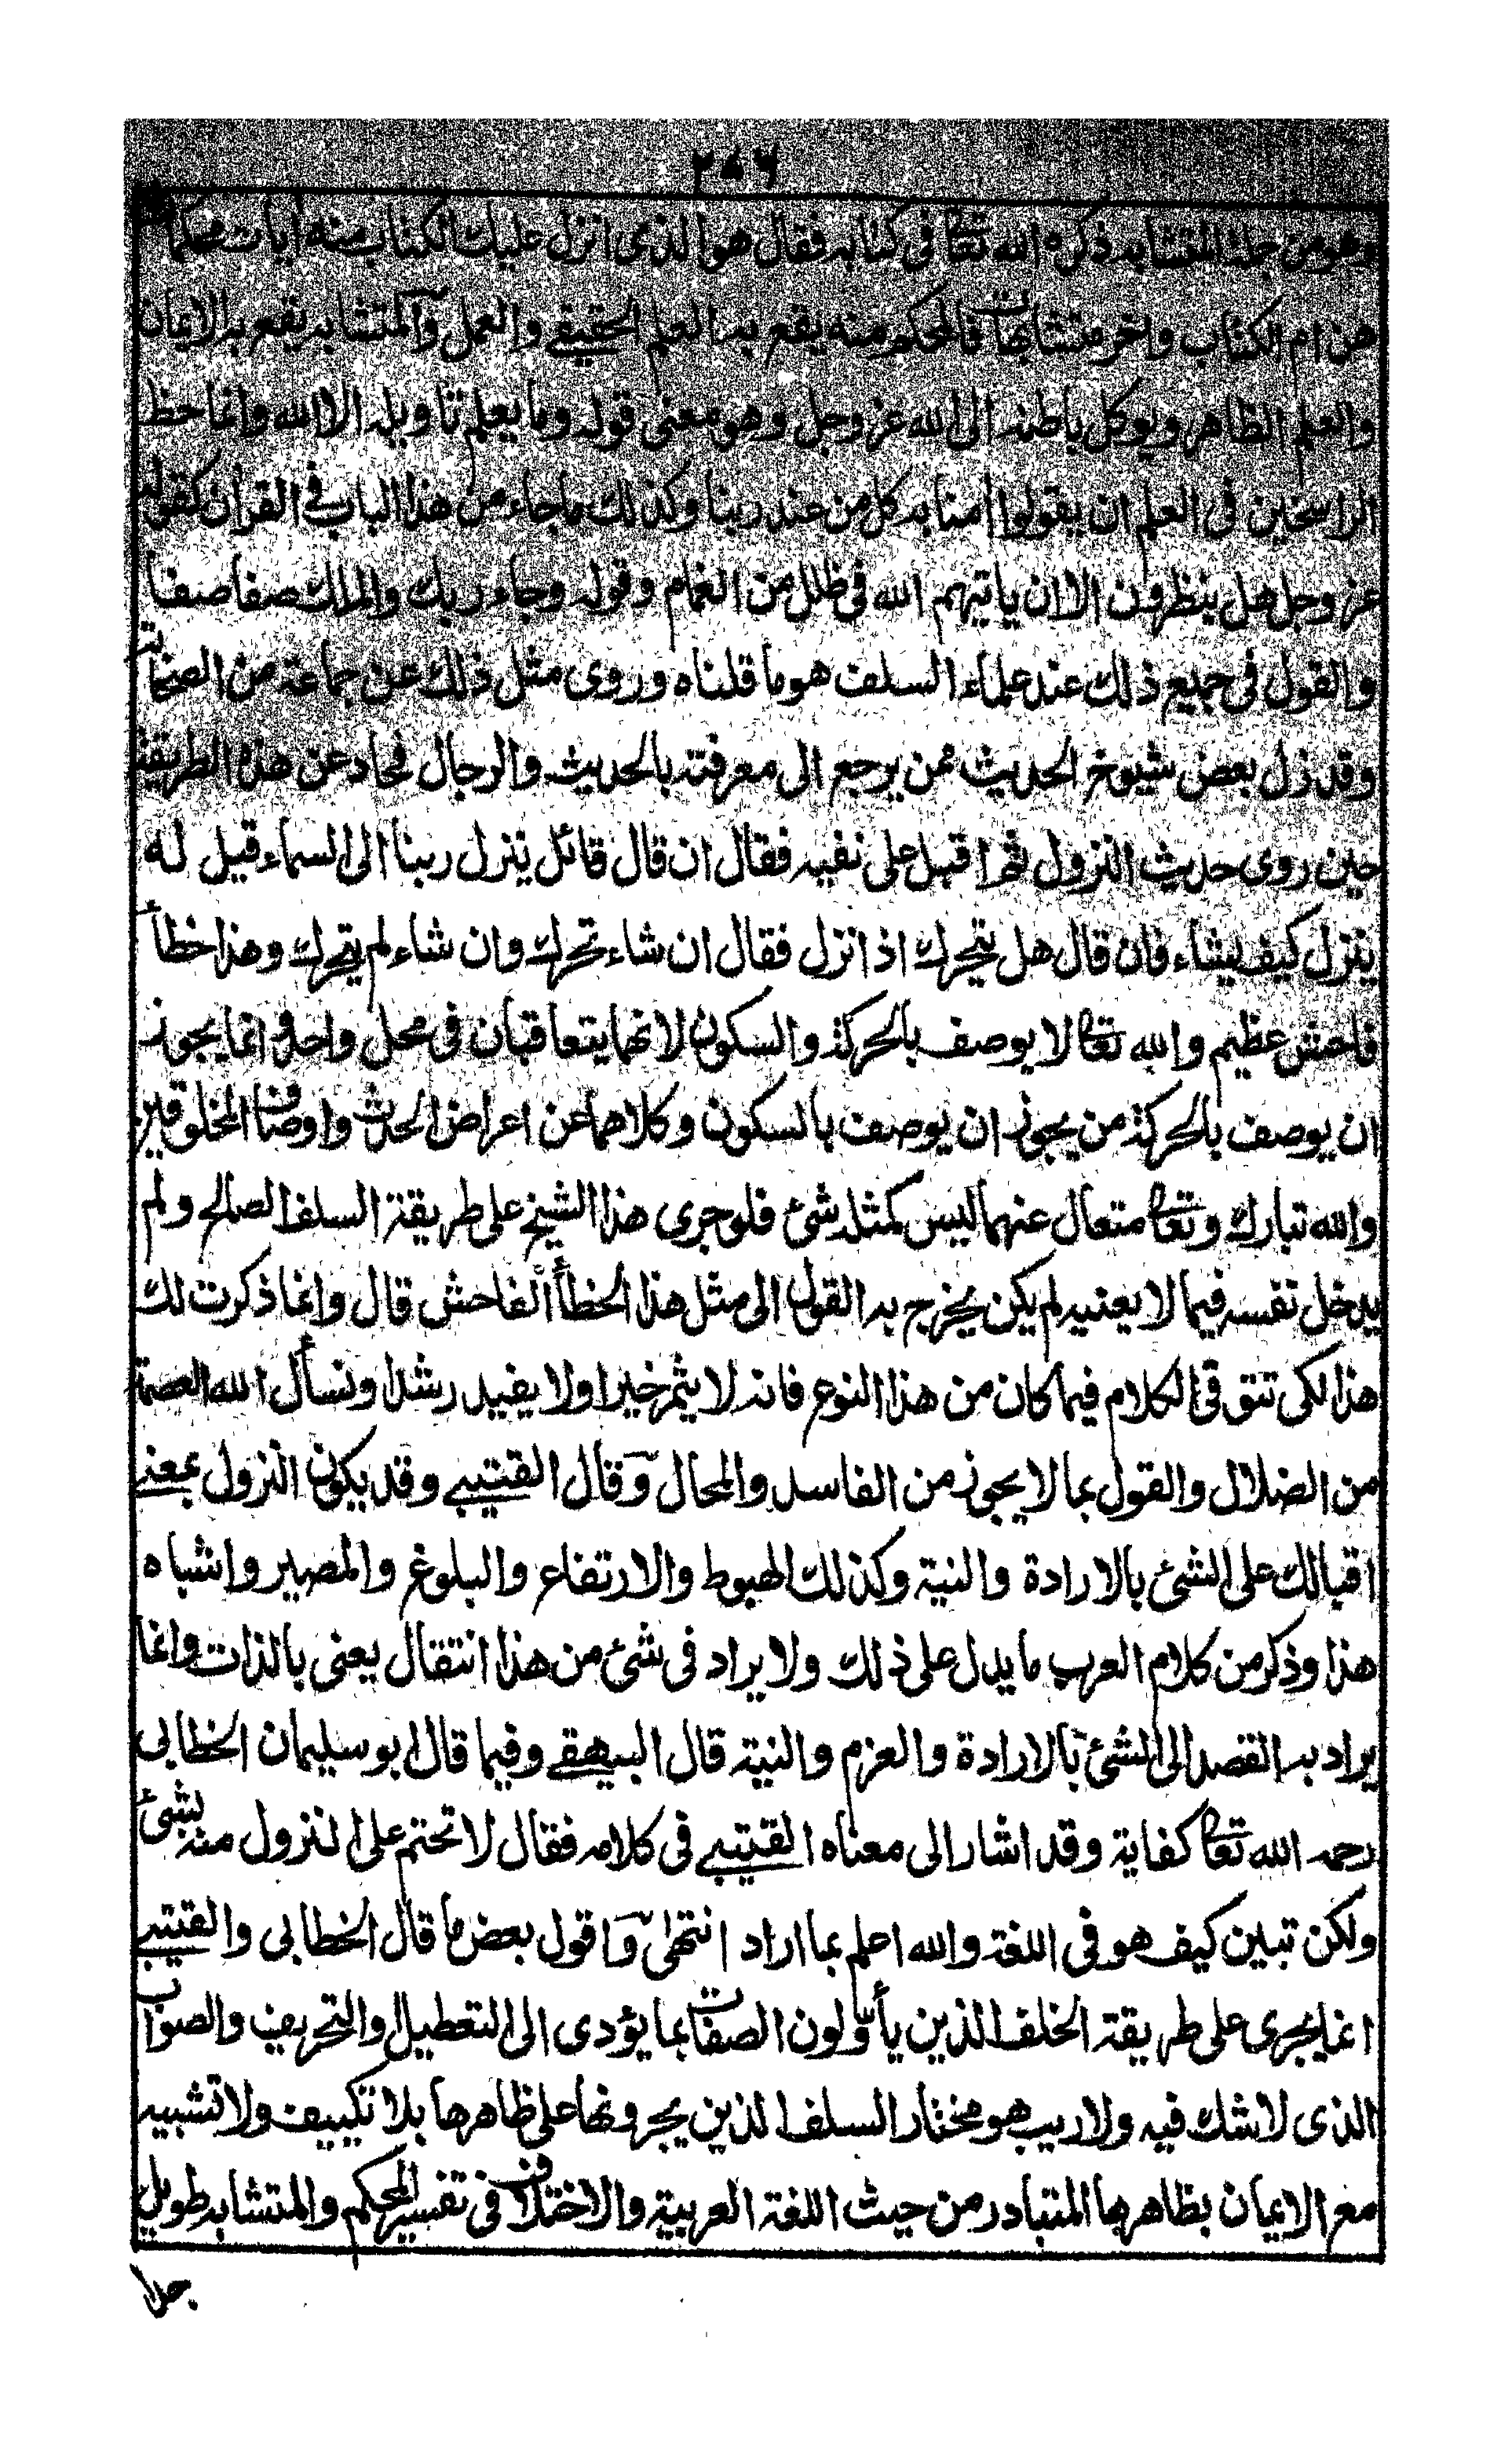 ٢٥٦
وهو من جملة المتشابه ذكره الله تعالى في كتابه فقال هو الذي انزل عليك الكتاب منه ايات محكمات
هن ام الكتاب واخر متشابهات فالمحكم منه يقع به العلم الحقيقي والعمل والمتشابه يقع به الايمان
والعلم الظاهر ويوكل باطنه الى الله عز وجل وهو معنى قوله وما يعلم تاويله الا الله وانما حظ
الراسخين في العلم ان يقولوا امنا به كل من عند ربنا وكذلك ما جاء من هذا الباب في القران كقوله
عز وجل هل ينظرون الا ان ياتيهم الله في ظلل من الغمام وقوله وجاء ربك والملك صفا صفا
والقول في جميع ذلك عند علماء السلف هو ما قلناه وروى مثل ذلك عن جماعة من الصحابة
وقد زل بعض شيوخ الحديث ممن يرجع الى معرفته بالحديث والرجال فحاد عن هذه الطريقة
حين روى حديث النزول ثم اقبل على نفيه فقال ان قال قائل ينزل ربنا الى السماء قيل له
ينزل كيف يشاء فان قال هل يتحرك اذا نزل فقال ان شاء تحرك وان شاء لم يتحرك وهذا خطأ
فاحش عظيم والله تعالى لا يوصف بالحركة والسكون لانهما يتعاقبان في محل واحد وانما يجوز
ان يوصف بالحركة من يجوز ان يوصف بالسكون وكلاهما عن اعراض الحدث واوصاف المخلوقين
والله تبارك وتعالى متعال عنهما ليس كمثله شئ فلو جرى هذا الشيخ على طريقة السلف الصالح ولم
يدخل نفسه فيما لا يعنيه لم يكن يخرج به القول الى مثل هذا الخطأ الفاحش قال وانما ذكرت لك
هذا لكى تتوقى الكلام فيما كان من هذا النوع فانه لا يثمر خيرا ولا يفيد رشدا ونسأل الله العصمة
من الضلال والقول بما لا يجوز من الفاسد والمحال وقال القتيبي وقد يكون النزول بمعنے
اقبالك على الشئ بالارادة والنية وكذلك الهبوط والارتفاع والبلوغ والمصير واشباه
هذا وذكر من كلام العرب ما يدل على ذلك ولا يراد في شئ من هذا انتقال يعنى بالذات وانما
يراد به القصد الى الشئ بالارادة والعزم والنية قال البيهقے وفيما قال ابو سليمان الخطابى
رحمه الله تعالى كفاية وقد اشار الى معناه القتيبے في كلامه فقال لا تحتم على النزول منه بشئ
ولكن تبين كيف هو في اللغة والله اعلم بما اراد انتهى واقول بعض ما قال الخطابى والقتيبے
انما يجرى على طريقة الخلف الذين يأولون الصفات بما يؤدى الى التعطيل والتحريف والصواب
الذى لا شك فيه ولا ريب هو مختار السلف الذين يجرونها على ظاهرها بلا تكييف ولا تشبيه
مع الايمان بظاهرها المتبادر من حيث اللغة العربية والاختلاف في تفسير المحكم والمتشابه طويل
جدا